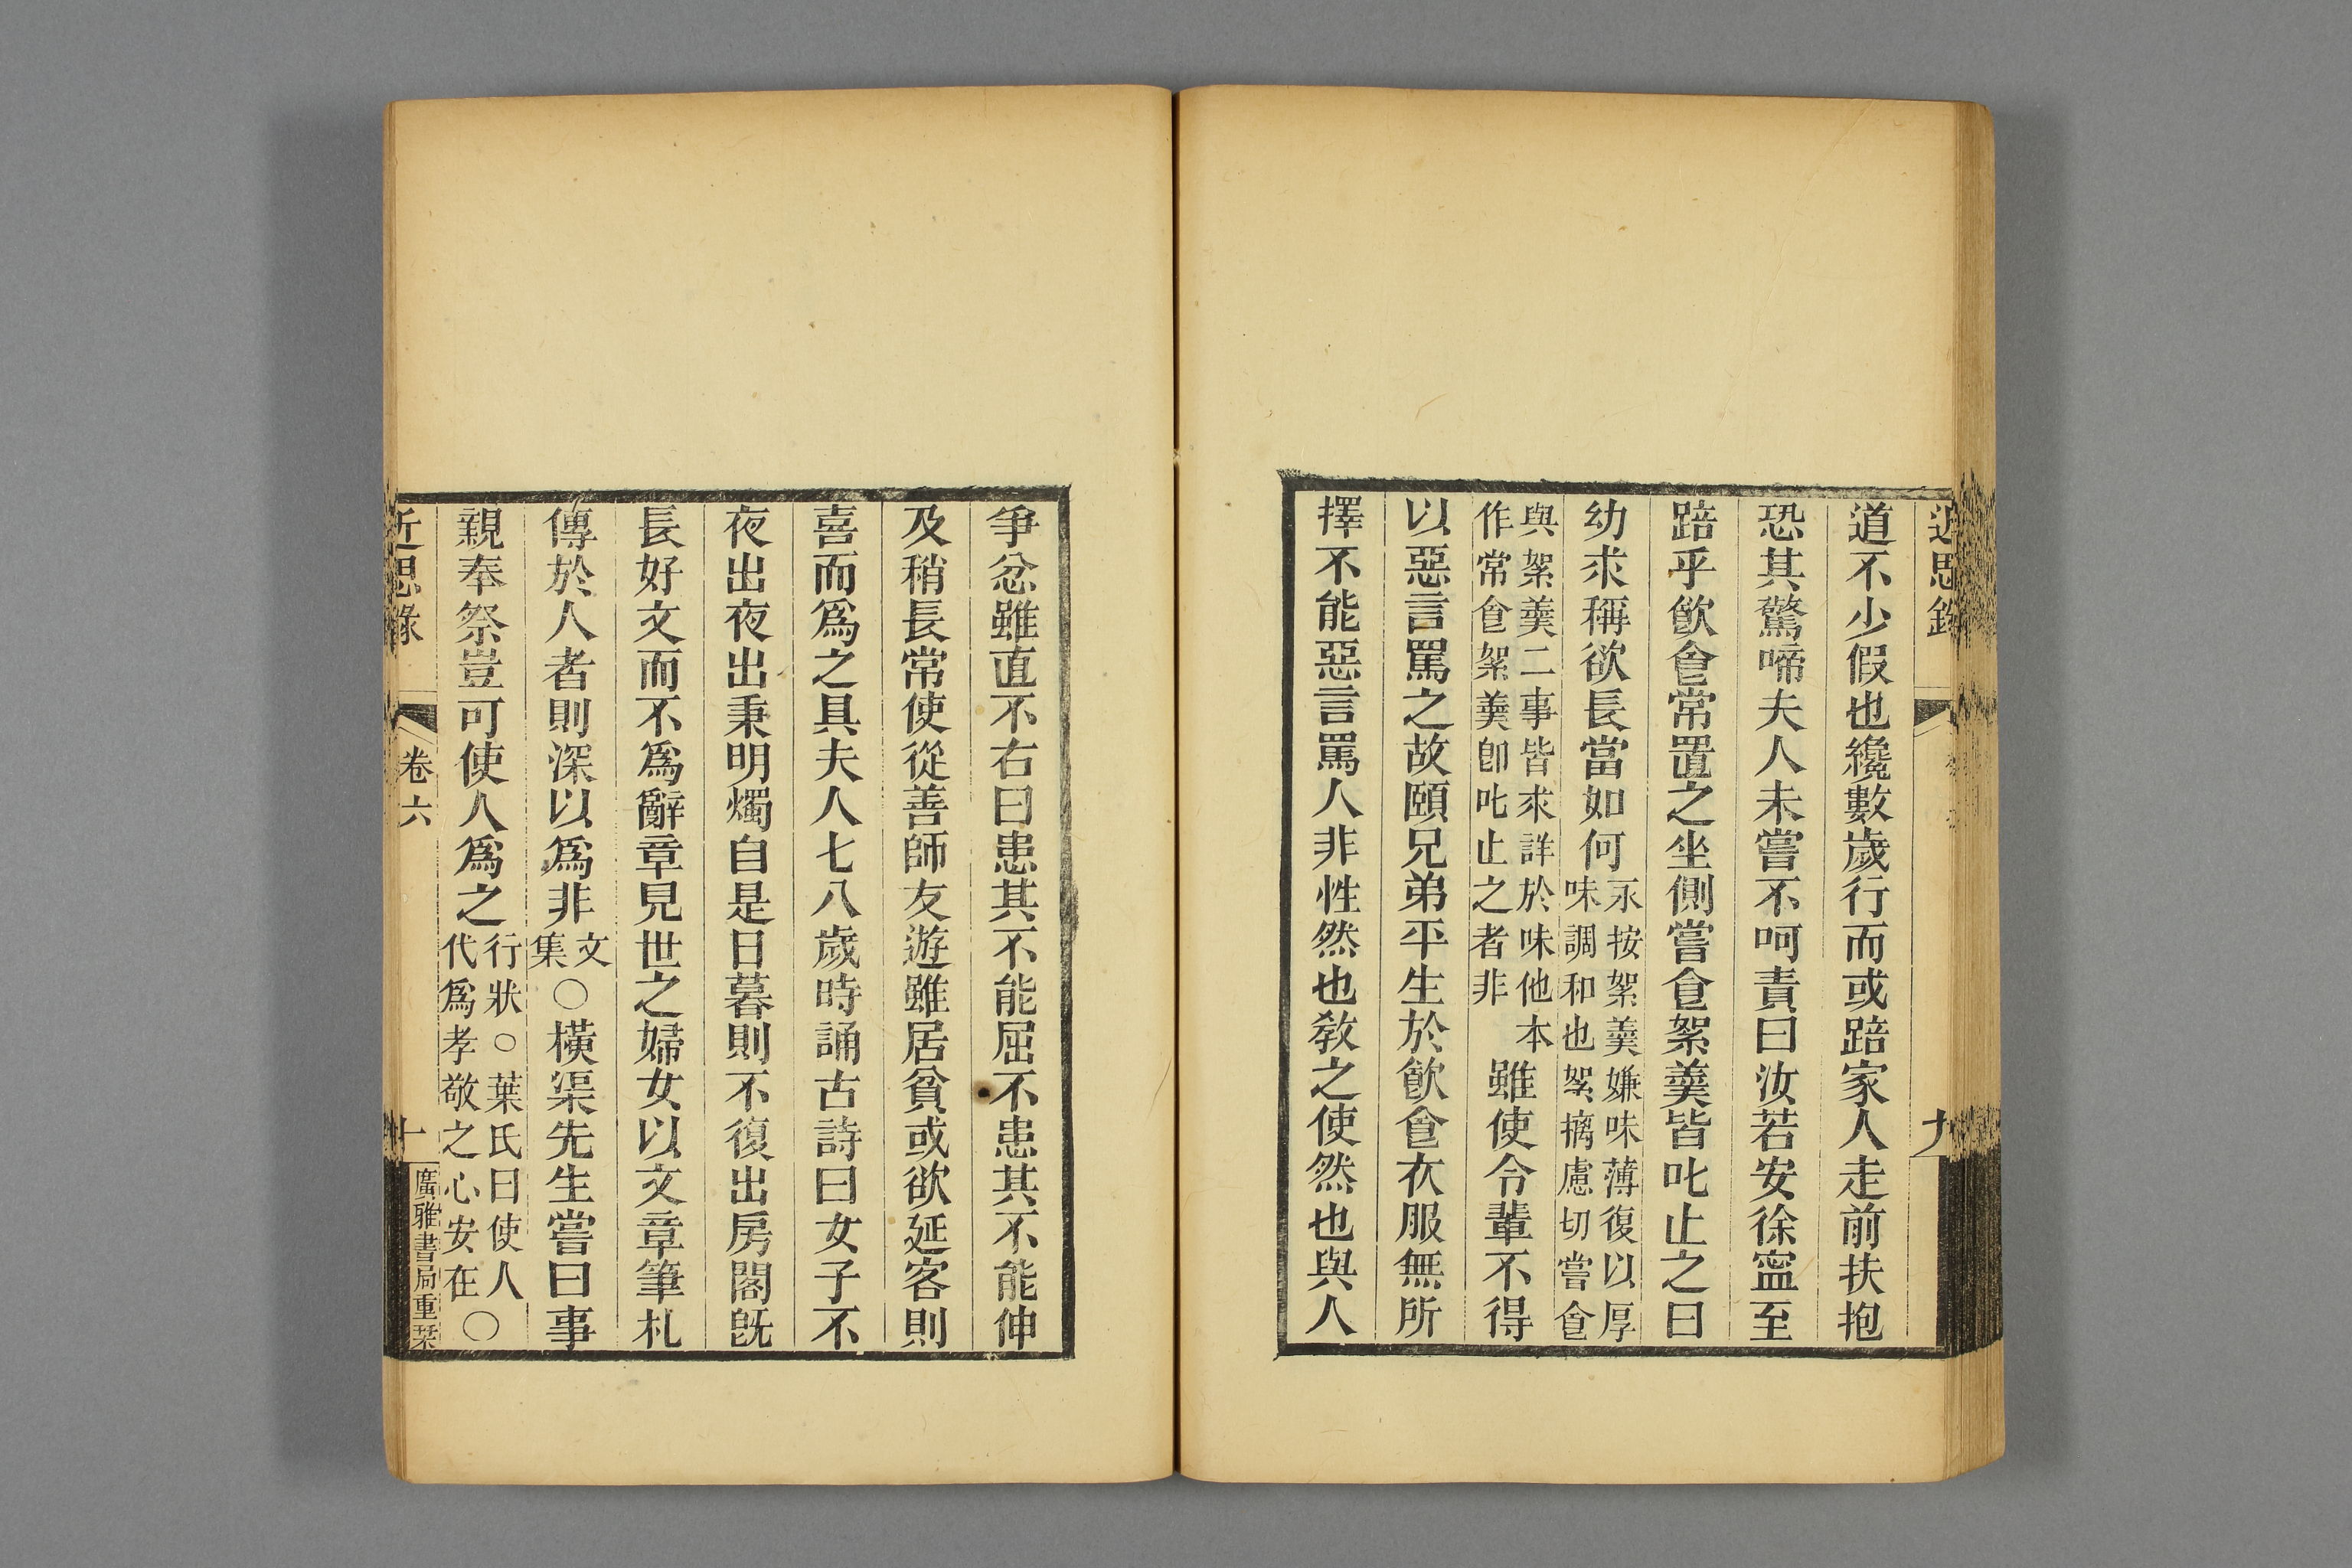 近思錄
九
道不少假也纔數歲行而或踣家人走前扶抱
恐其驚啼夫人未嘗不呵責曰汝若安徐寧至
踣乎飮食常置之坐側嘗食絮羹皆叱止之曰
幼求稱欲長當如何永按絮羹嫌味薄復以厚味調和也絮摛慮切嘗食
與絮羹二事皆求詳於味他本作常食絮羹卽叱止之者非雖使令輩不得
以惡言罵之故頤兄弟平生於飮食衣服無所
擇不能惡言罵人非性然也教之使然也與人
爭忿雖直不右曰患其不能屈不患其不能伸
及稍長常使從善師友遊雖居貧或欲延客則
喜而爲之具夫人七八歲時誦古詩曰女子不
夜出夜出秉明燭自是日暮則不復出房閤旣
長好文而不爲辭章見世之婦女以文章筆札
傳於人者則深以爲非文集○橫渠先生嘗曰事
親奉祭豈可使人爲之行狀○葉氏曰使人代爲孝敬之心安在○
近思錄
卷六
十
廣雅書局重栞